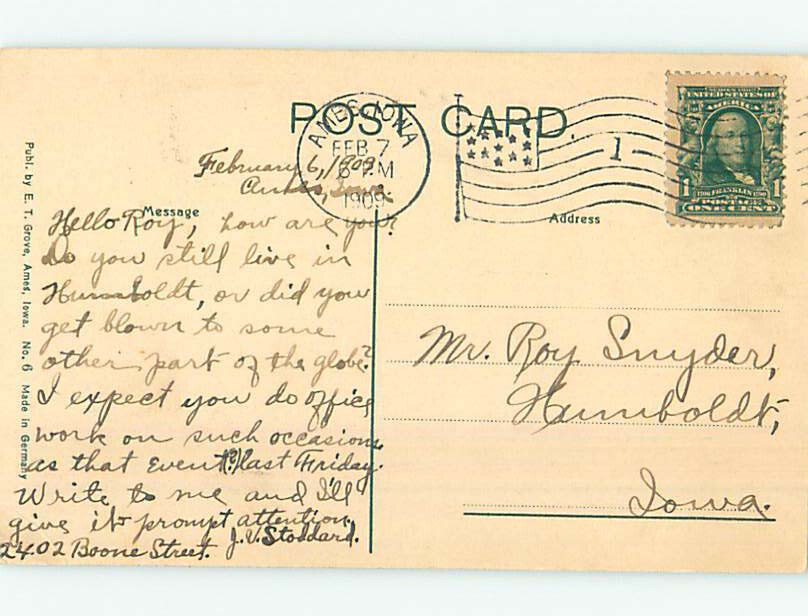 POST CARD.
AMES, IOWA
FEB 7
6 PM
1909
1
UNITED STATES OF
AMERICA
1 FRANKLIN 1
ONE CENT
February 6, 1909
Ames, Iowa.
Message
Address
Hello Roy, how are you?
Do you still live in
Humboldt, or did you
get blown to some
other part of the globe?
I expect you do office
work on such occasions
as that event(?) last Friday.
Write to me and I'll
give it prompt attention.
J. V. Stoddard.
2402 Boone Street.
Mr. Roy Snyder,
Humboldt,
Iowa.
Publ. by E. T. Grove, Ames, Iowa. No. 6 Made in Germany